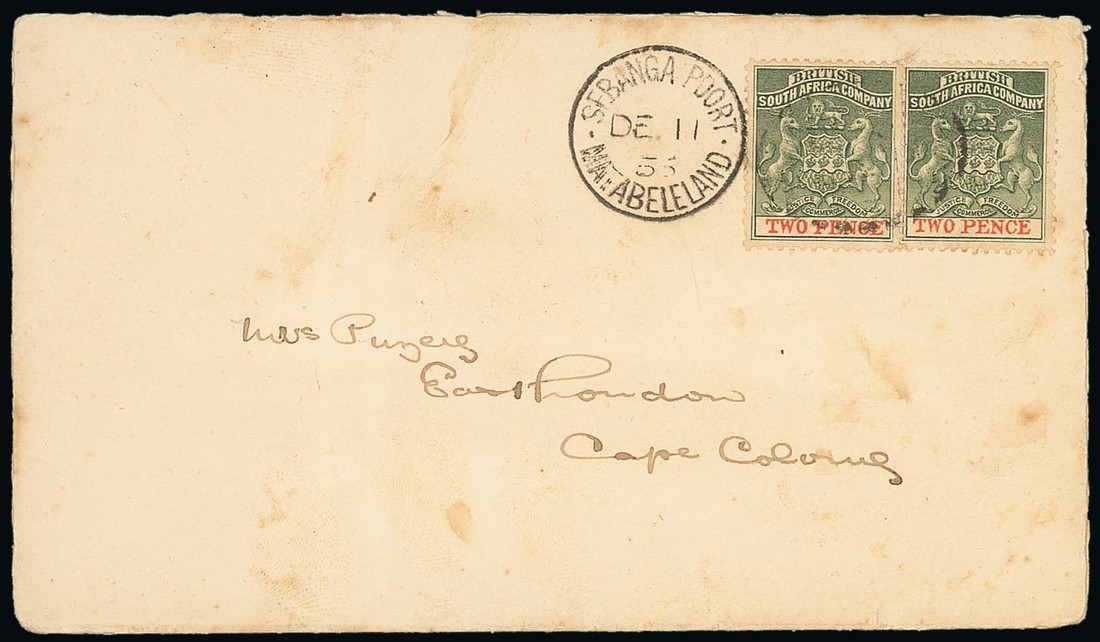 SEBANGA POORT
DE 11
MATABELELAND
BRITISH
SOUTH AFRICA COMPANY
JUSTICE FREEDOM
COMMERCE
TWO PENCE
BRITISH
SOUTH AFRICA COMPANY
JUSTICE FREEDOM
COMMERCE
TWO PENCE
Mrs
East London
Cape Colony